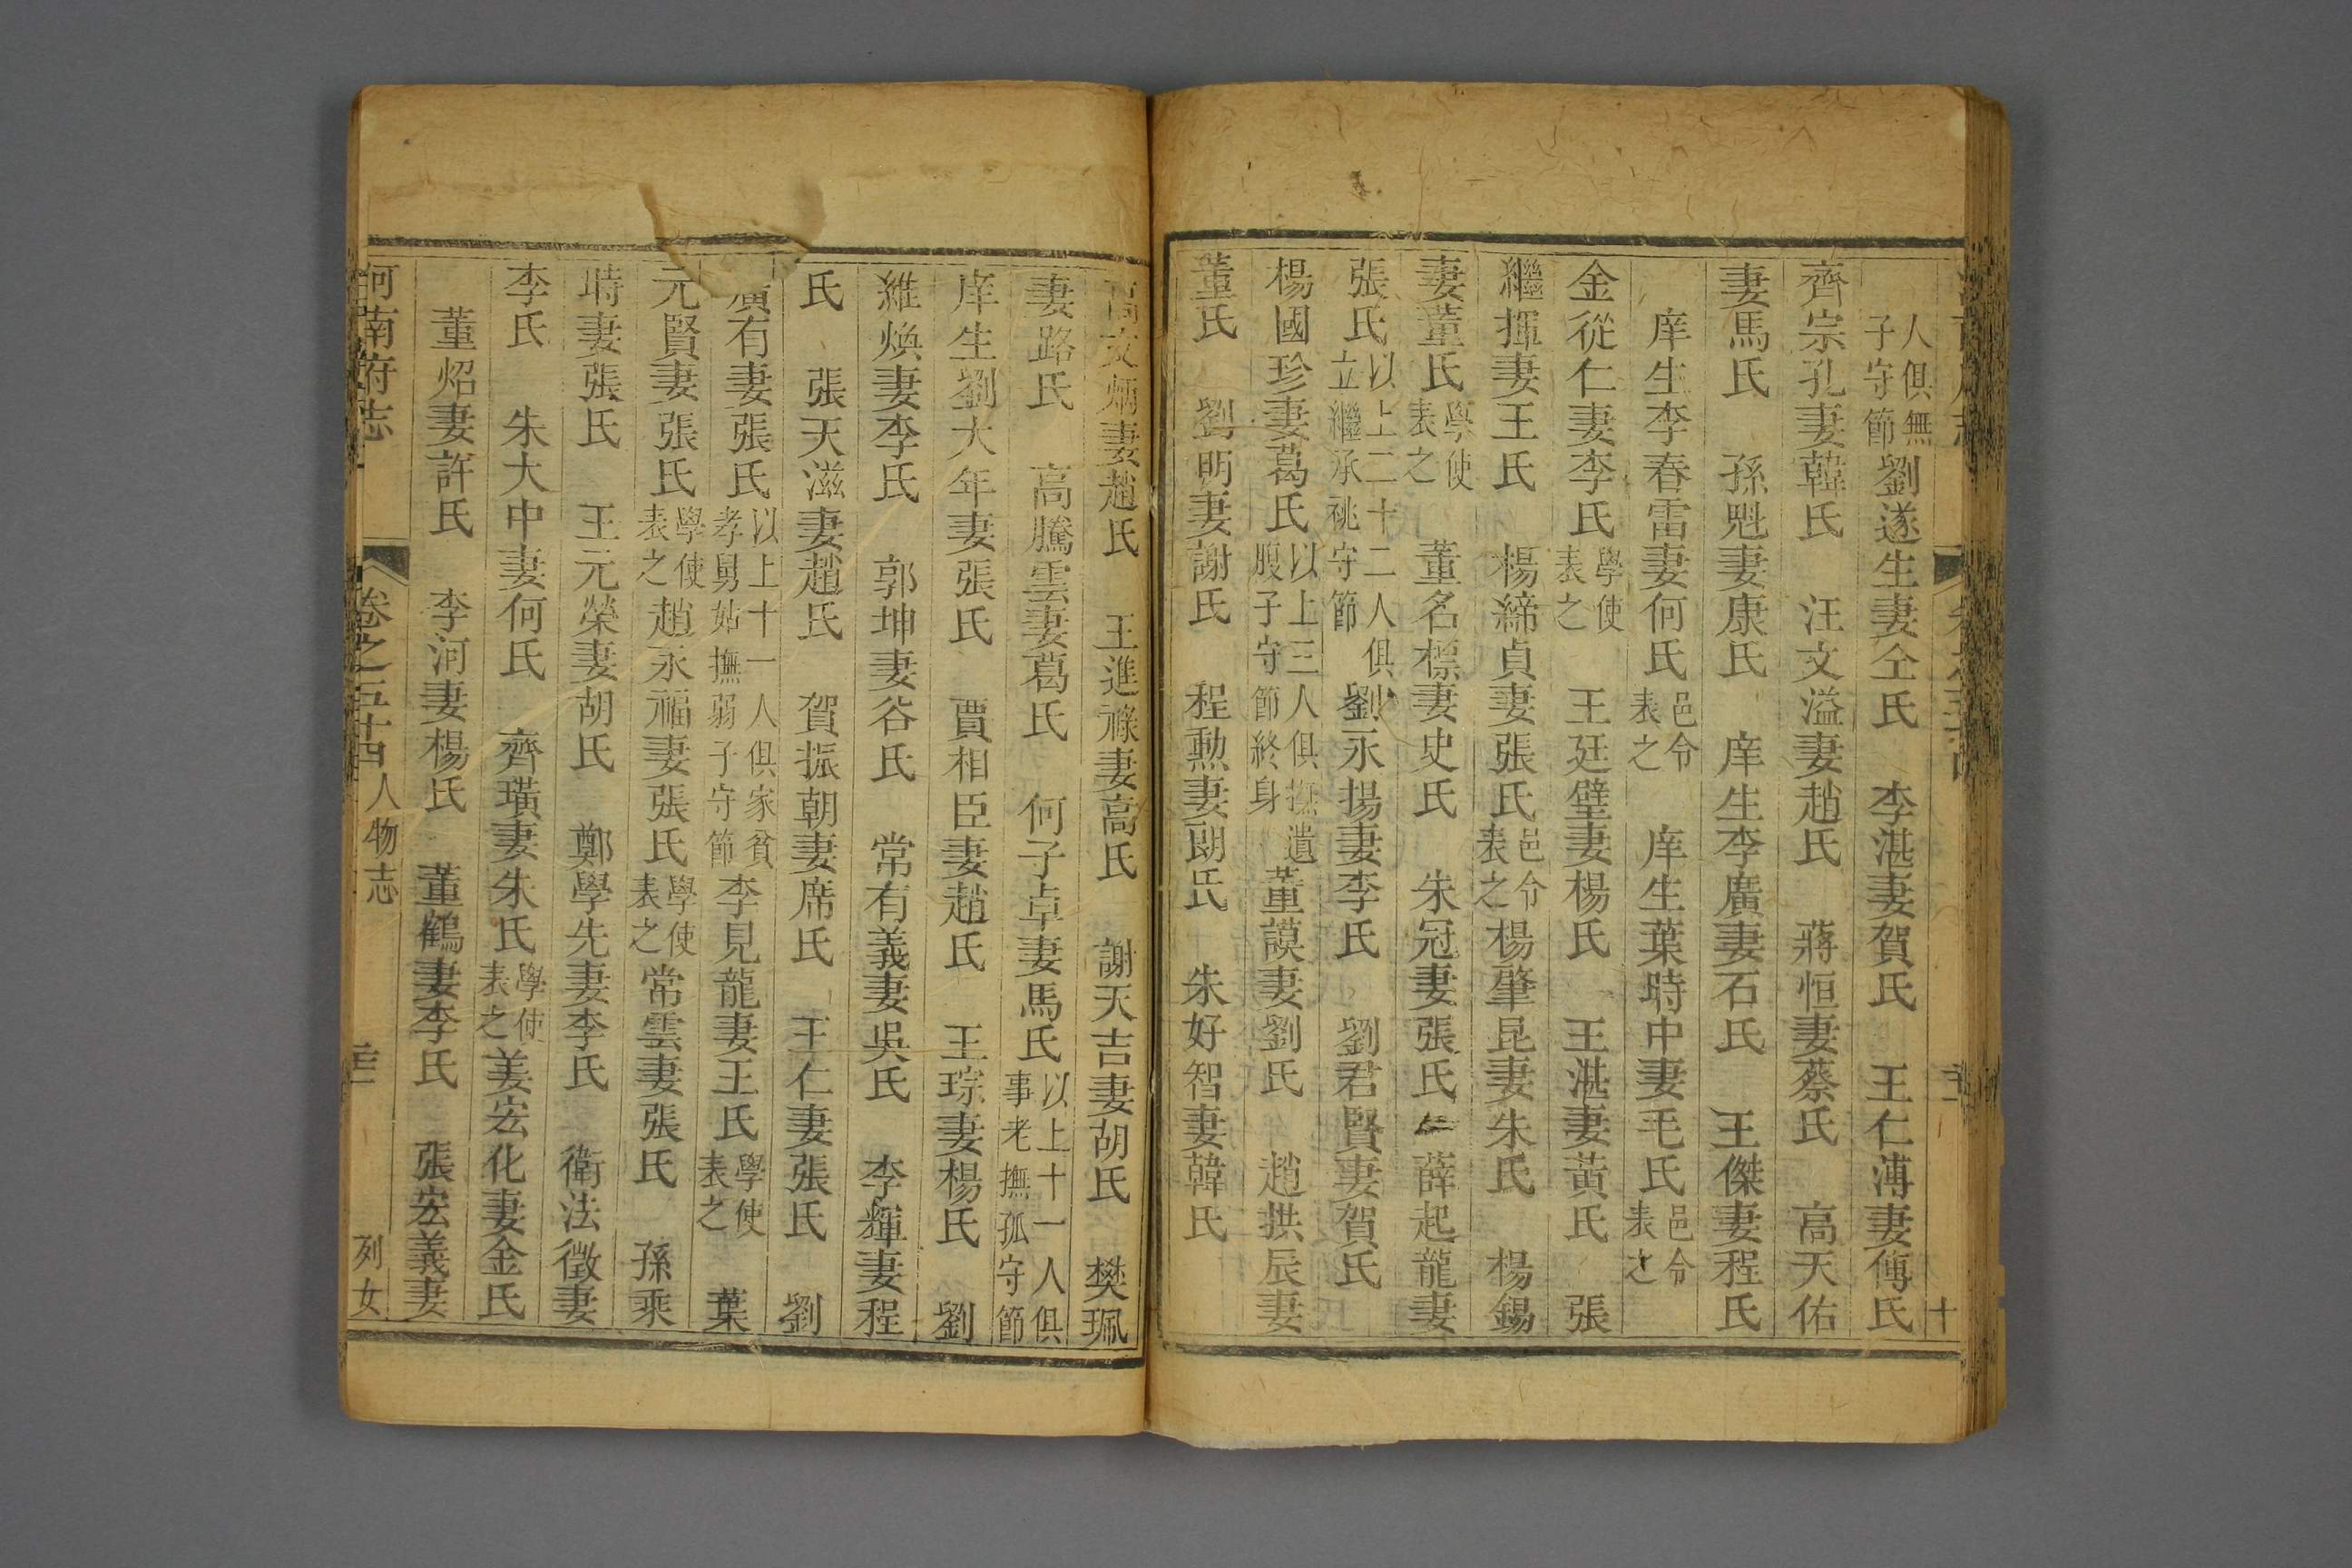 人俱無子守節劉遂生妻仝氏　李湛妻賀氏　王仁溥妻傅氏
齊宗孔妻韓氏　汪文溢妻趙氏　蔣恒妻蔡氏　高天佑
妻馬氏　孫魁妻康氏　庠生李廣妻石氏　王傑妻程氏
庠生李春雷妻何氏邑令表之　庠生葉時中妻毛氏邑令表之
金從仁妻李氏學使表之　王廷璧妻楊氏　王湛妻黃氏　張
繼揮妻王氏　楊締貞妻張氏邑令表之楊肇昆妻朱氏　楊錫
妻董氏學使表之　董名標妻史氏　朱冠妻張氏　薛起龍妻
張氏以上二十二人俱立繼承祧守節劉永揚妻李氏　劉君賢妻賀氏
楊國珍妻葛氏以上三人俱撫遺腹子守節終身董謨妻劉氏　趙拱辰妻
董氏　劉明妻謝氏　程勲妻郎氏　朱好智妻韓氏
高文炳妻趙氏　王進祿妻高氏　謝天吉妻胡氏　樊珮
妻路氏　高騰雲妻葛氏　何子卓妻馬氏以上十一人俱事老撫孤守節
庠生劉大年妻張氏　賈相臣妻趙氏　王琮妻楊氏　劉
維煥妻李氏　郭坤妻谷氏　常有義妻吳氏　李輝妻程
氏　張天滋妻趙氏　賀振朝妻席氏　王仁妻張氏　劉
廣有妻張氏以上十一人俱家貧孝舅姑撫弱子守節李見龍妻王氏學使表之　葉
元賢妻張氏學使表之趙永福妻張氏學使表之常雲妻張氏　孫乘
時妻張氏　王元榮妻胡氏　鄭學先妻李氏　衛法徵妻
李氏　朱大中妻何氏　齊璜妻朱氏學使表之姜宏化妻金氏
董炤妻許氏　李河妻楊氏　董鶴妻李氏　張宏義妻
河南府志　卷之五十四　人物志　列女